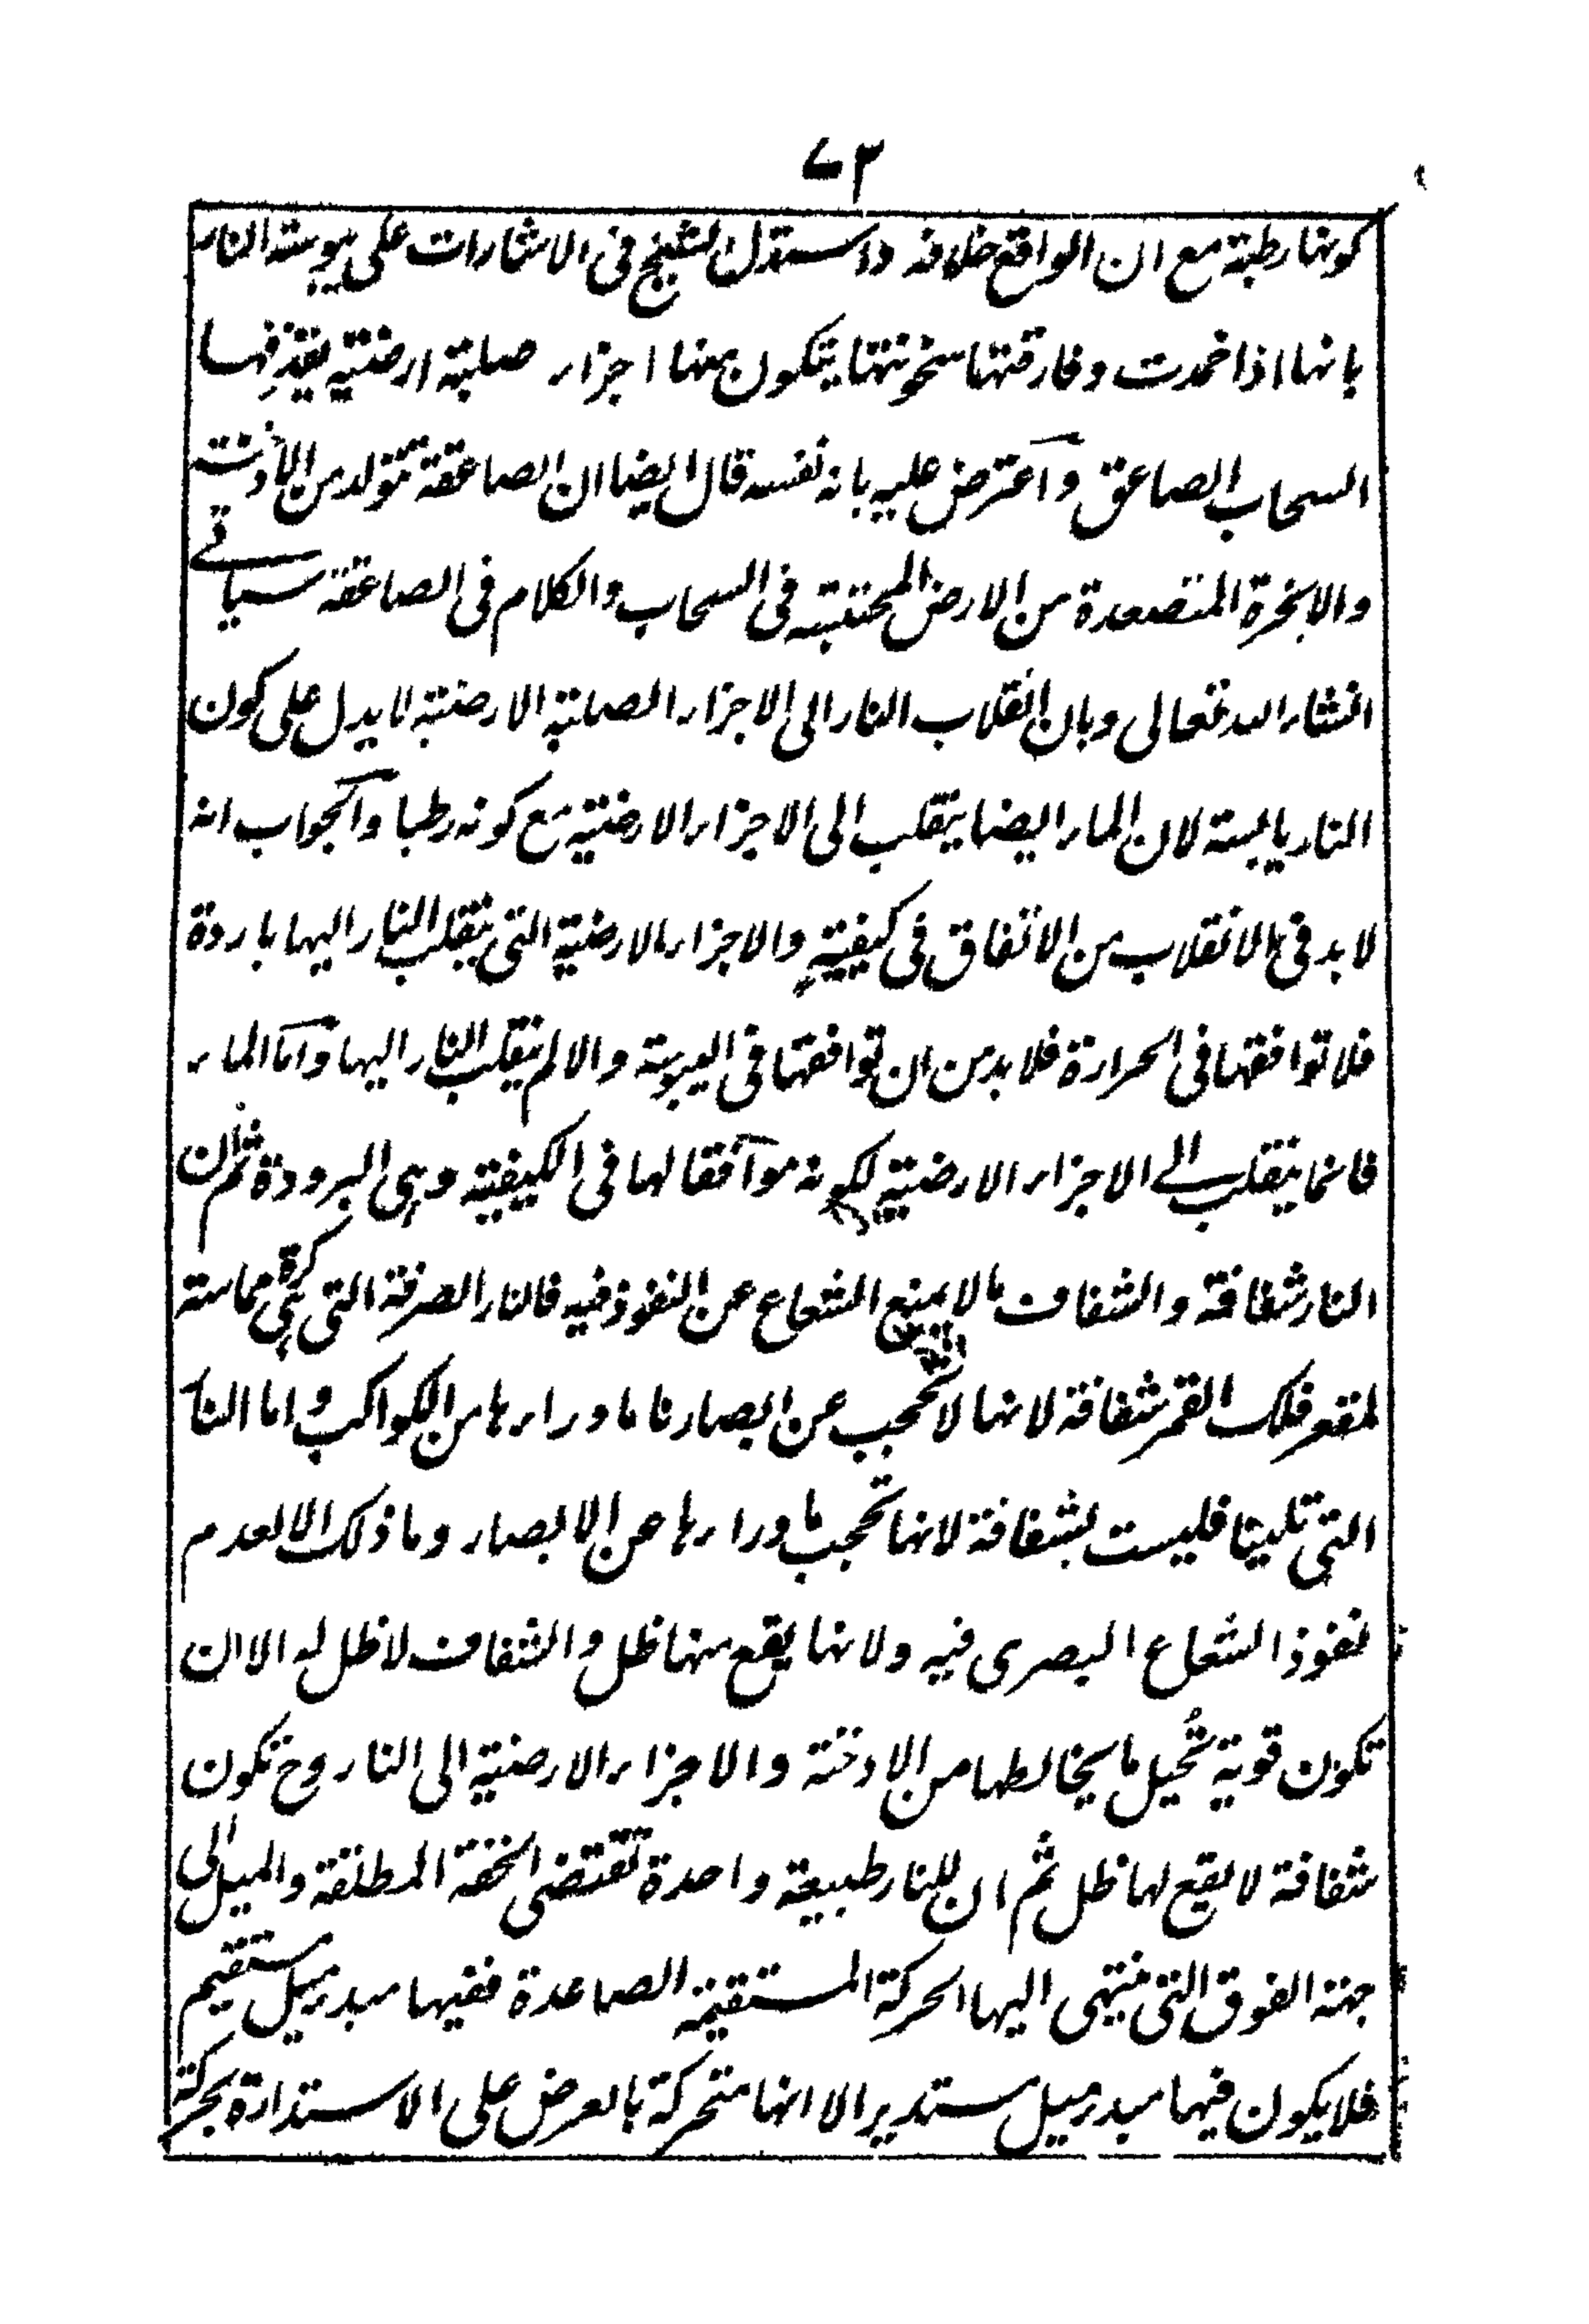 ٧٣
كونها رطبة مع ان الواقع خلافه واستدل الشيخ فى الاشارات على يبوسة النار
بانها اذا خمدت وفارقتها سخونتها يتكون منها اجزاء صلبة ارضية يقذفها
السحاب الصاعق واعترض عليه بانه نفسه قال ايضا ان الصاعقة تتولد من الادخنة
والابخرة المتصعدة من الارض المحتبسة فى السحاب والكلام فى الصاعقة سياتے
انشاء الله تعالى وبان انقلاب النار الى الاجزاء الصلبة الارضية لا يدل على كون
النار يابسة لان الماء ايضا ينقلب الى الاجزاء الارضية مع كونه رطبا والجواب انه
لا بد فى الانقلاب من الاتفاق فى كيفيةٍ والاجزاء الارضية التى ينقلب النار اليها باردة
فلا توافقها فى الحرارة فلا بد من ان توافقها فى اليبوسة والا لم ينقلب النار اليها واما الماء
فانما ينقلب الے الاجزاء الارضية لكونه موافقا لها فى الكيفية وهى البرودة ثم ان
النار شفافة والشفاف ما لا يمنع الشعاع عن النفوذ فيه فالنار الصرفة التى هى كرة مماسة
لمقعر فلك القمر شفافة لانها لا تحجب عن ابصارنا ما وراءها من الكواكب واما النار
التى تلينا فليست بشفافة لانها تحجب ما وراءها عن الابصار وما ذلك الا لعدم
نفوذ الشعاع البصرى فيه ولانها يقع منها ظل والشفاف لا ظل له الا ان
تكون قوية تُحيل ما يخالطها من الادخنة والاجزاء الارضية الى النار وح تكون
شفافة لا يقع لها ظل ثم ان للنار طبيعة واحدة تقتضى الخفة المطلقة والميل الى
جهة الفوق التى ينتهى اليها الحركة المستقيمة الصاعدة ففيها مبدء ميل مستقيم
فلا يكون فيها مبدء ميل مستدير الا انها متحركة بالعرض على الاستدارة بحركة